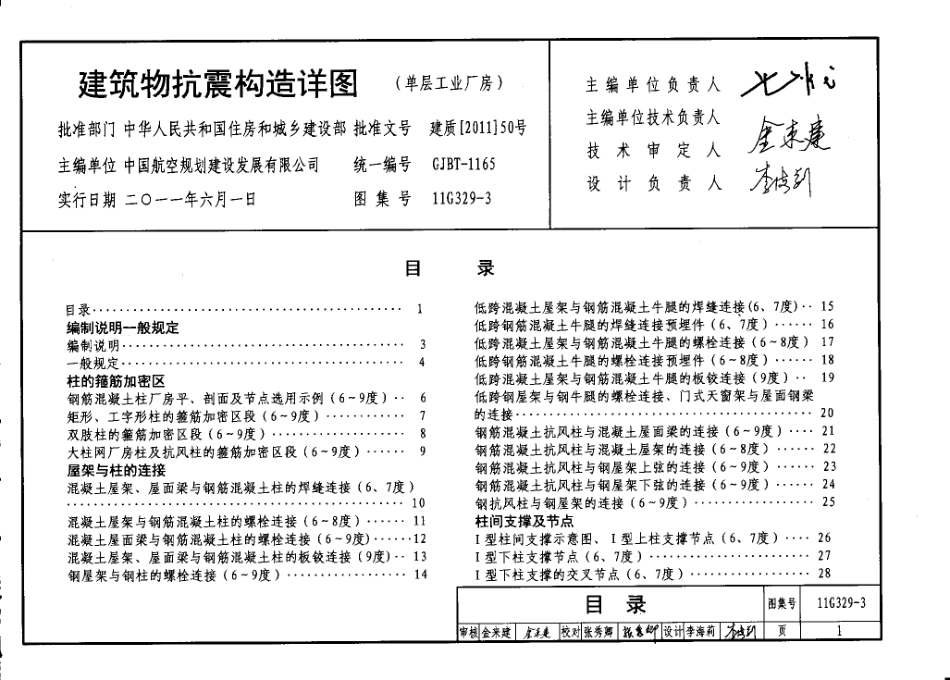 建筑物抗震构造详图 (单层工业厂房)
批准部门 中华人民共和国住房和城乡建设部 批准文号 建质[2011]50号
主编单位 中国航空规划建设发展有限公司 统一编号 GJBT-1165
实行日期 二〇一一年六月一日 图集号 11G329-3
主编单位负责人
主编单位技术负责人 金来建
技术审定人
设计负责人 李海莉
目 录
目录 1
编制说明一般规定
编制说明 3
一般规定 4
柱的箍筋加密区
钢筋混凝土柱厂房平、剖面及节点选用示例(6~9度) 6
矩形、工字形柱的箍筋加密区段(6~9度) 7
双肢柱的箍筋加密区段(6~9度) 8
大柱网厂房柱及抗风柱的箍筋加密区段(6~9度) 9
屋架与柱的连接
混凝土屋架、屋面梁与钢筋混凝土柱的焊缝连接(6、7度)
10
混凝土屋架与钢筋混凝土柱的螺栓连接(6~8度) 11
混凝土屋面梁与钢筋混凝土柱的螺栓连接(6~9度) 12
混凝土屋架、屋面梁与钢筋混凝土柱的板铰连接(9度) 13
钢屋架与钢柱的螺栓连接(6~9度) 14
低跨混凝土屋架与钢筋混凝土牛腿的焊缝连接(6、7度) 15
低跨钢筋混凝土牛腿的焊缝连接预埋件(6、7度) 16
低跨混凝土屋架与钢筋混凝土牛腿的螺栓连接(6~8度) 17
低跨钢筋混凝土牛腿的螺栓连接预埋件(6~8度) 18
低跨混凝土屋架与钢筋混凝土牛腿的板铰连接(9度) 19
低跨钢屋架与钢牛腿的螺栓连接、门式天窗架与屋面钢梁
的连接 20
钢筋混凝土抗风柱与混凝土屋面梁的连接(6~9度) 21
钢筋混凝土抗风柱与混凝土屋架的连接(6~8度) 22
钢筋混凝土抗风柱与钢屋架上弦的连接(6~9度) 23
钢筋混凝土抗风柱与钢屋架下弦的连接(6~9度) 24
钢抗风柱与钢屋架的连接(6~9度) 25
柱间支撑及节点
I型柱间支撑示意图、I型上柱支撑节点(6、7度) 26
I型下柱支撑节点(6、7度) 27
I型下柱支撑的交叉节点(6、7度) 28
目 录 图集号 11G329-3
审核 金来建 金来建 校对 张秀卿 张秀卿 设计 李海莉 李海莉 页 1